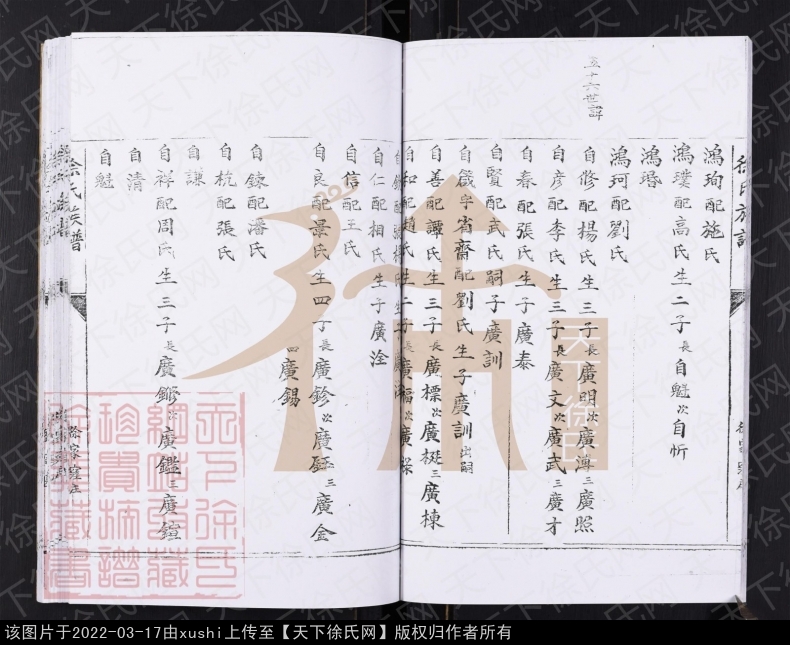 五十六世
鴻珣配施氏
鴻璞配高氏生二子長自魁次自忻
鴻瑉
鴻珂配劉氏
自修配楊氏生三子長廣明次廣海三廣照
自彦配李氏生三子長廣文次廣武三廣才
自春配張氏生子廣泰
自賢配武氏嗣子廣訓
自箴字省齋配劉氏生子廣訓出嗣
自善配譚氏生三子長廣標次廣梃三廣棟
自和配趙氏生二子長廣福次廣
自仁配相氏生子廣淦
自信配王氏
自良配景氏生四子長廣鉁次廣鈺三廣金
四廣錫
自鍊配潘氏
自梡配張氏
自謙
自祥配周氏生三子長廣鏒次廣鑑三廣鍹
自清
自魁
徐氏族譜
天下徐氏
天下徐氏网
该图片于2022-03-17由xushi上传至【天下徐氏网】版权归作者所有